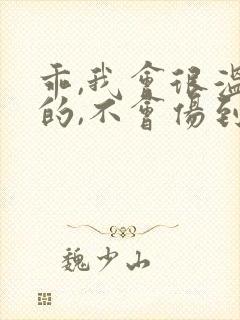 乖,我會很溫
的,不會傷到
魏少山